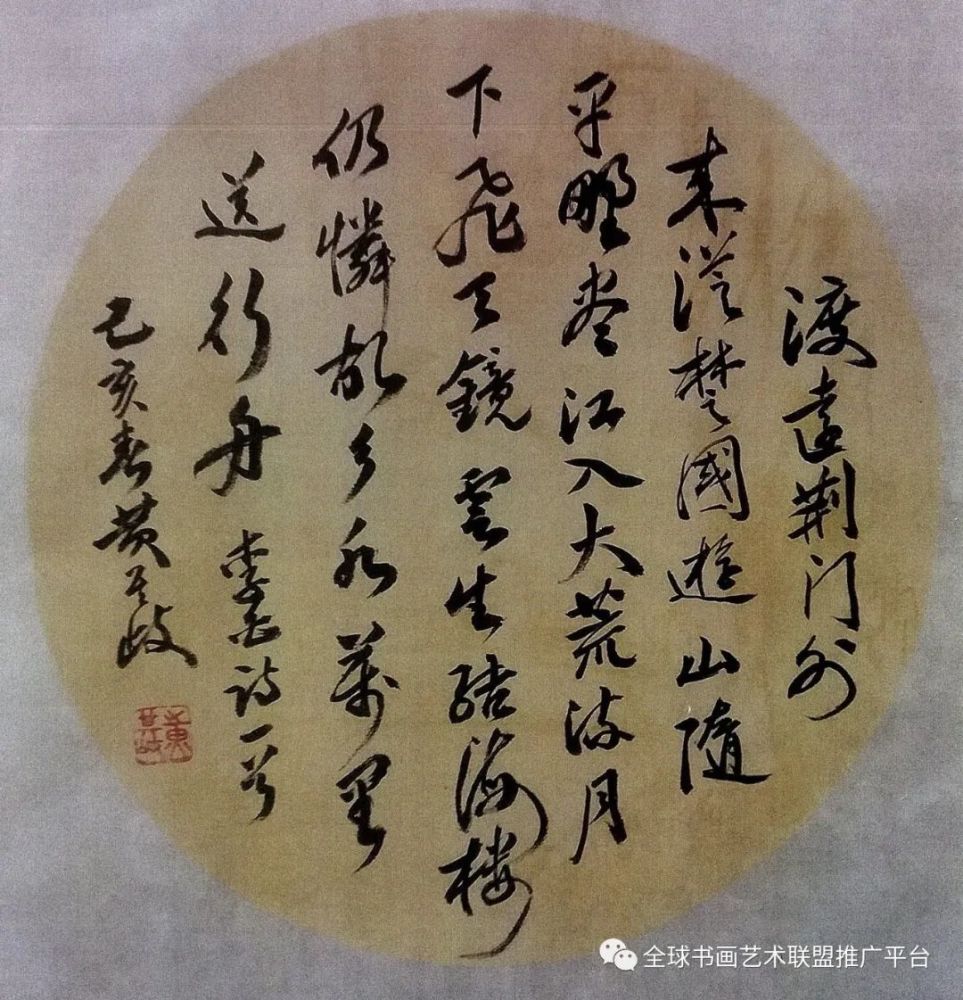 渡遠荆门外
来從楚國遊山隨
平野尽江入大荒流月
下飛天鏡雲生结海楼
仍憐故乡水萬里
送行舟 李白诗一首
己亥春黄岐
全球书画艺术联盟推广平台